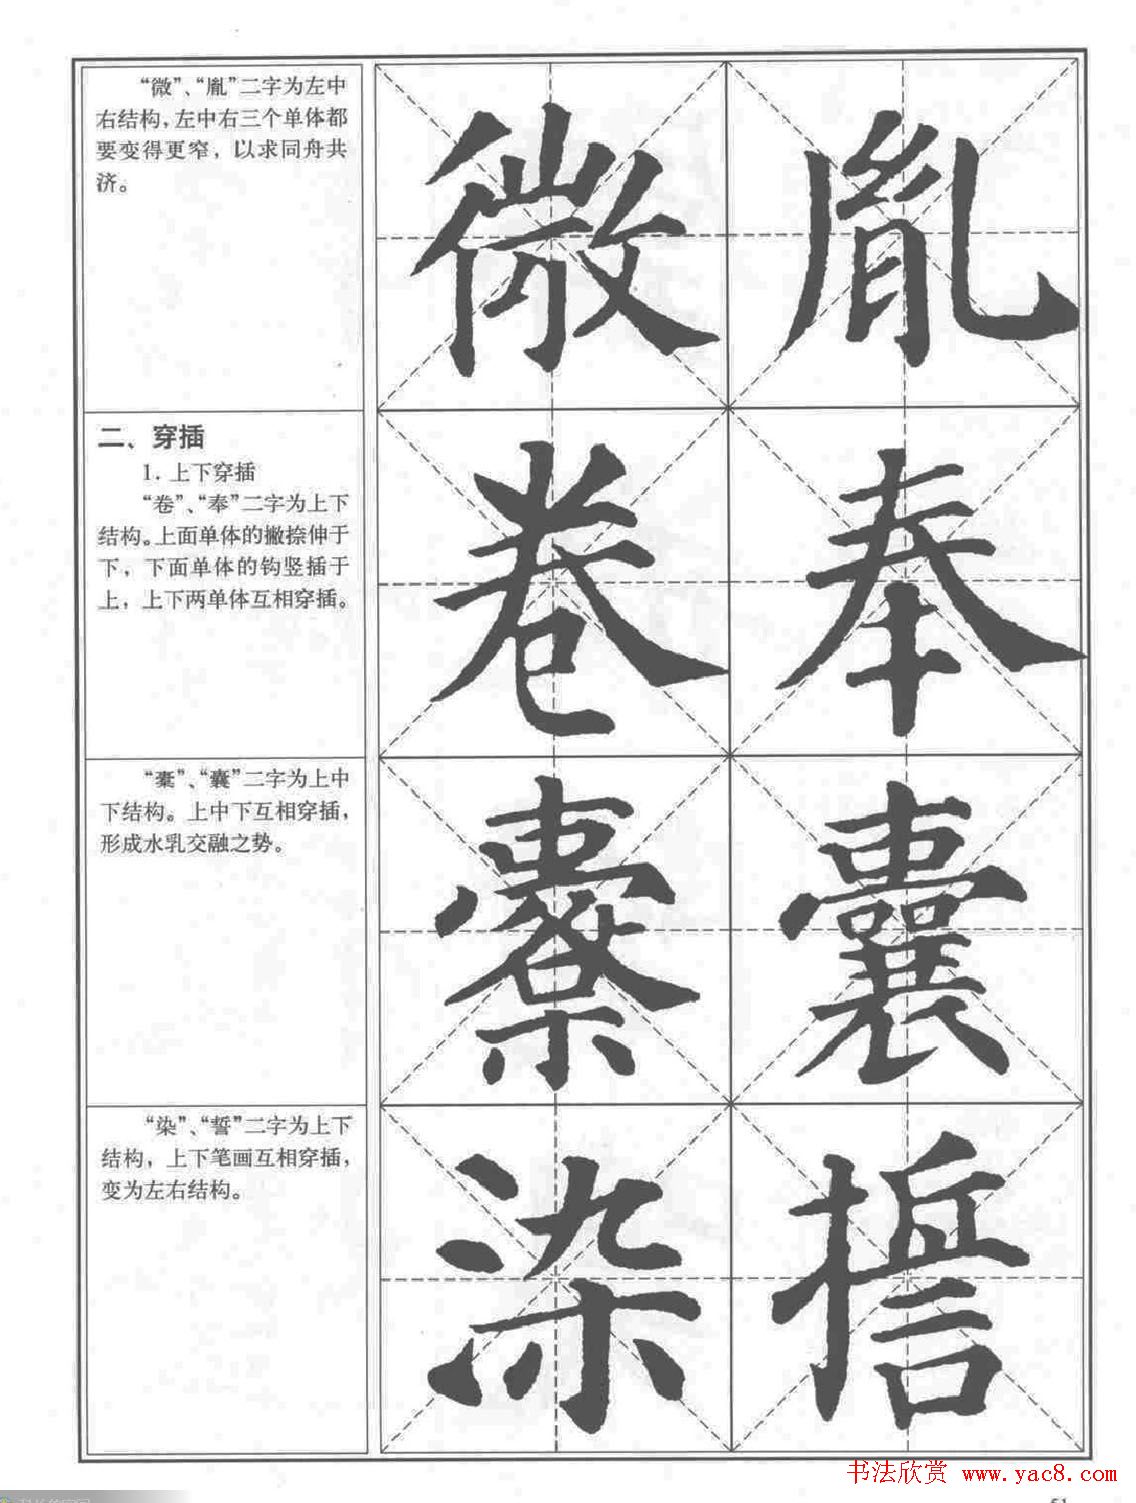 “微”、“胤”二字为左中
右结构，左中右三个单体都
要变得更窄，以求同舟共
济。
微 胤
二、穿插
1. 上下穿插
“卷”、“奉”二字为上下
结构。上面单体的撇捺伸于
下，下面单体的钩竖插于
上，上下两单体互相穿插。
卷 奉
“橐”、“囊”二字为上中
下结构。上中下互相穿插，
形成水乳交融之势。
橐 囊
“染”、“誓”二字为上下
结构，上下笔画互相穿插，
变为左右结构。
染 誓
书法欣赏 www.yac8.com